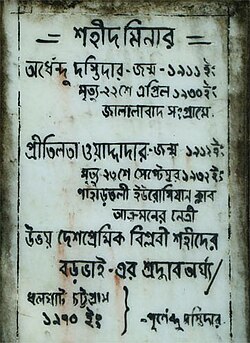 = শহীদ মিনার =
অর্ধেন্দু দস্তিদার - জন্ম - ১৯১১ ইং
মৃত্যু - ২২শে এপ্রিল ১৯৩০ ইং
জালালাবাদ সংগ্রামে
প্রীতিলতা ওয়াদ্দাদার - জন্ম ১৯১২ইং
মৃত্যু ২৩শে সেপ্টেম্বর ১৯৩২ ইং
পাহাড়তলী ইউরোপিয়ান ক্লাব
আক্রমনের নেত্রী
উভয় দেশপ্রেমিক বিপ্লবী শহীদের
বড়ভাই - এর শ্রদ্ধার অর্ঘ্য/
ধলঘাট চট্টগ্রাম
১৯৭০ ইং } - পূর্ণেন্দু দস্তিদার